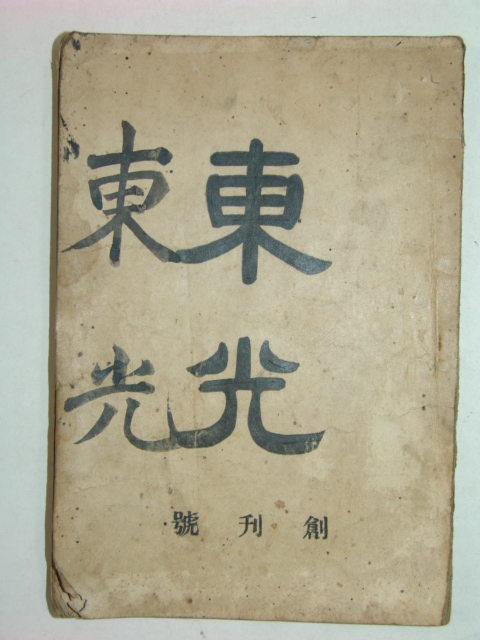 東光
東光
創刊號